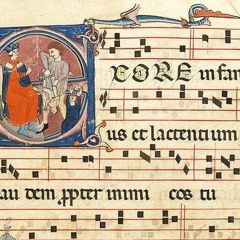 EXORE infan
us et lactentium
au dem ppter inimi cos tu